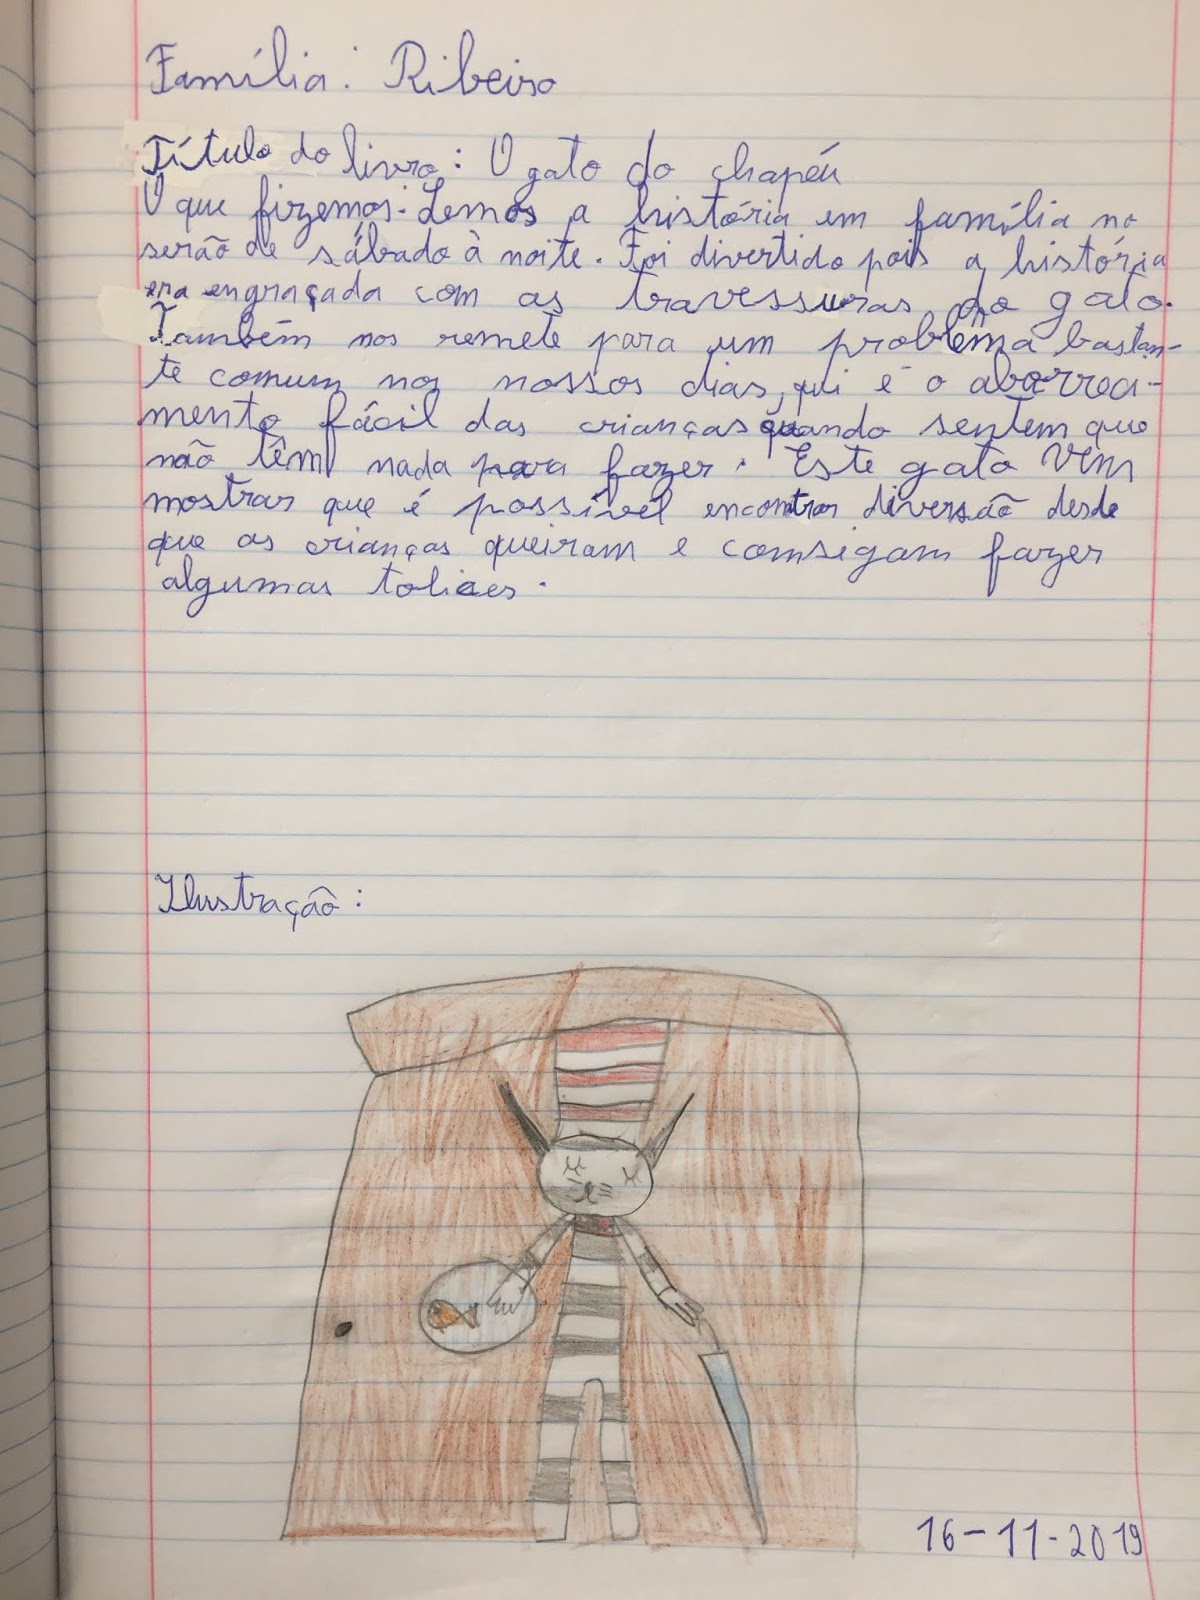 Família: Ribeiro
Título do livro: O gato do chapéu
O que fizemos: Lemos a história em família no
serão de sábado à noite. Foi divertido pois a história
era engraçada com as travessuras do gato.
Também nos remete para um problema bastan-
te comum nos nossos dias, qui é o aborreci-
mento fácil das crianças quando sentem que
não têm nada para fazer. Este gato vem
mostrar que é possível encontrar diversão desde
que as crianças queiram e comsigam fazer
algumas tolices.
Ilustração:
16-11-2019